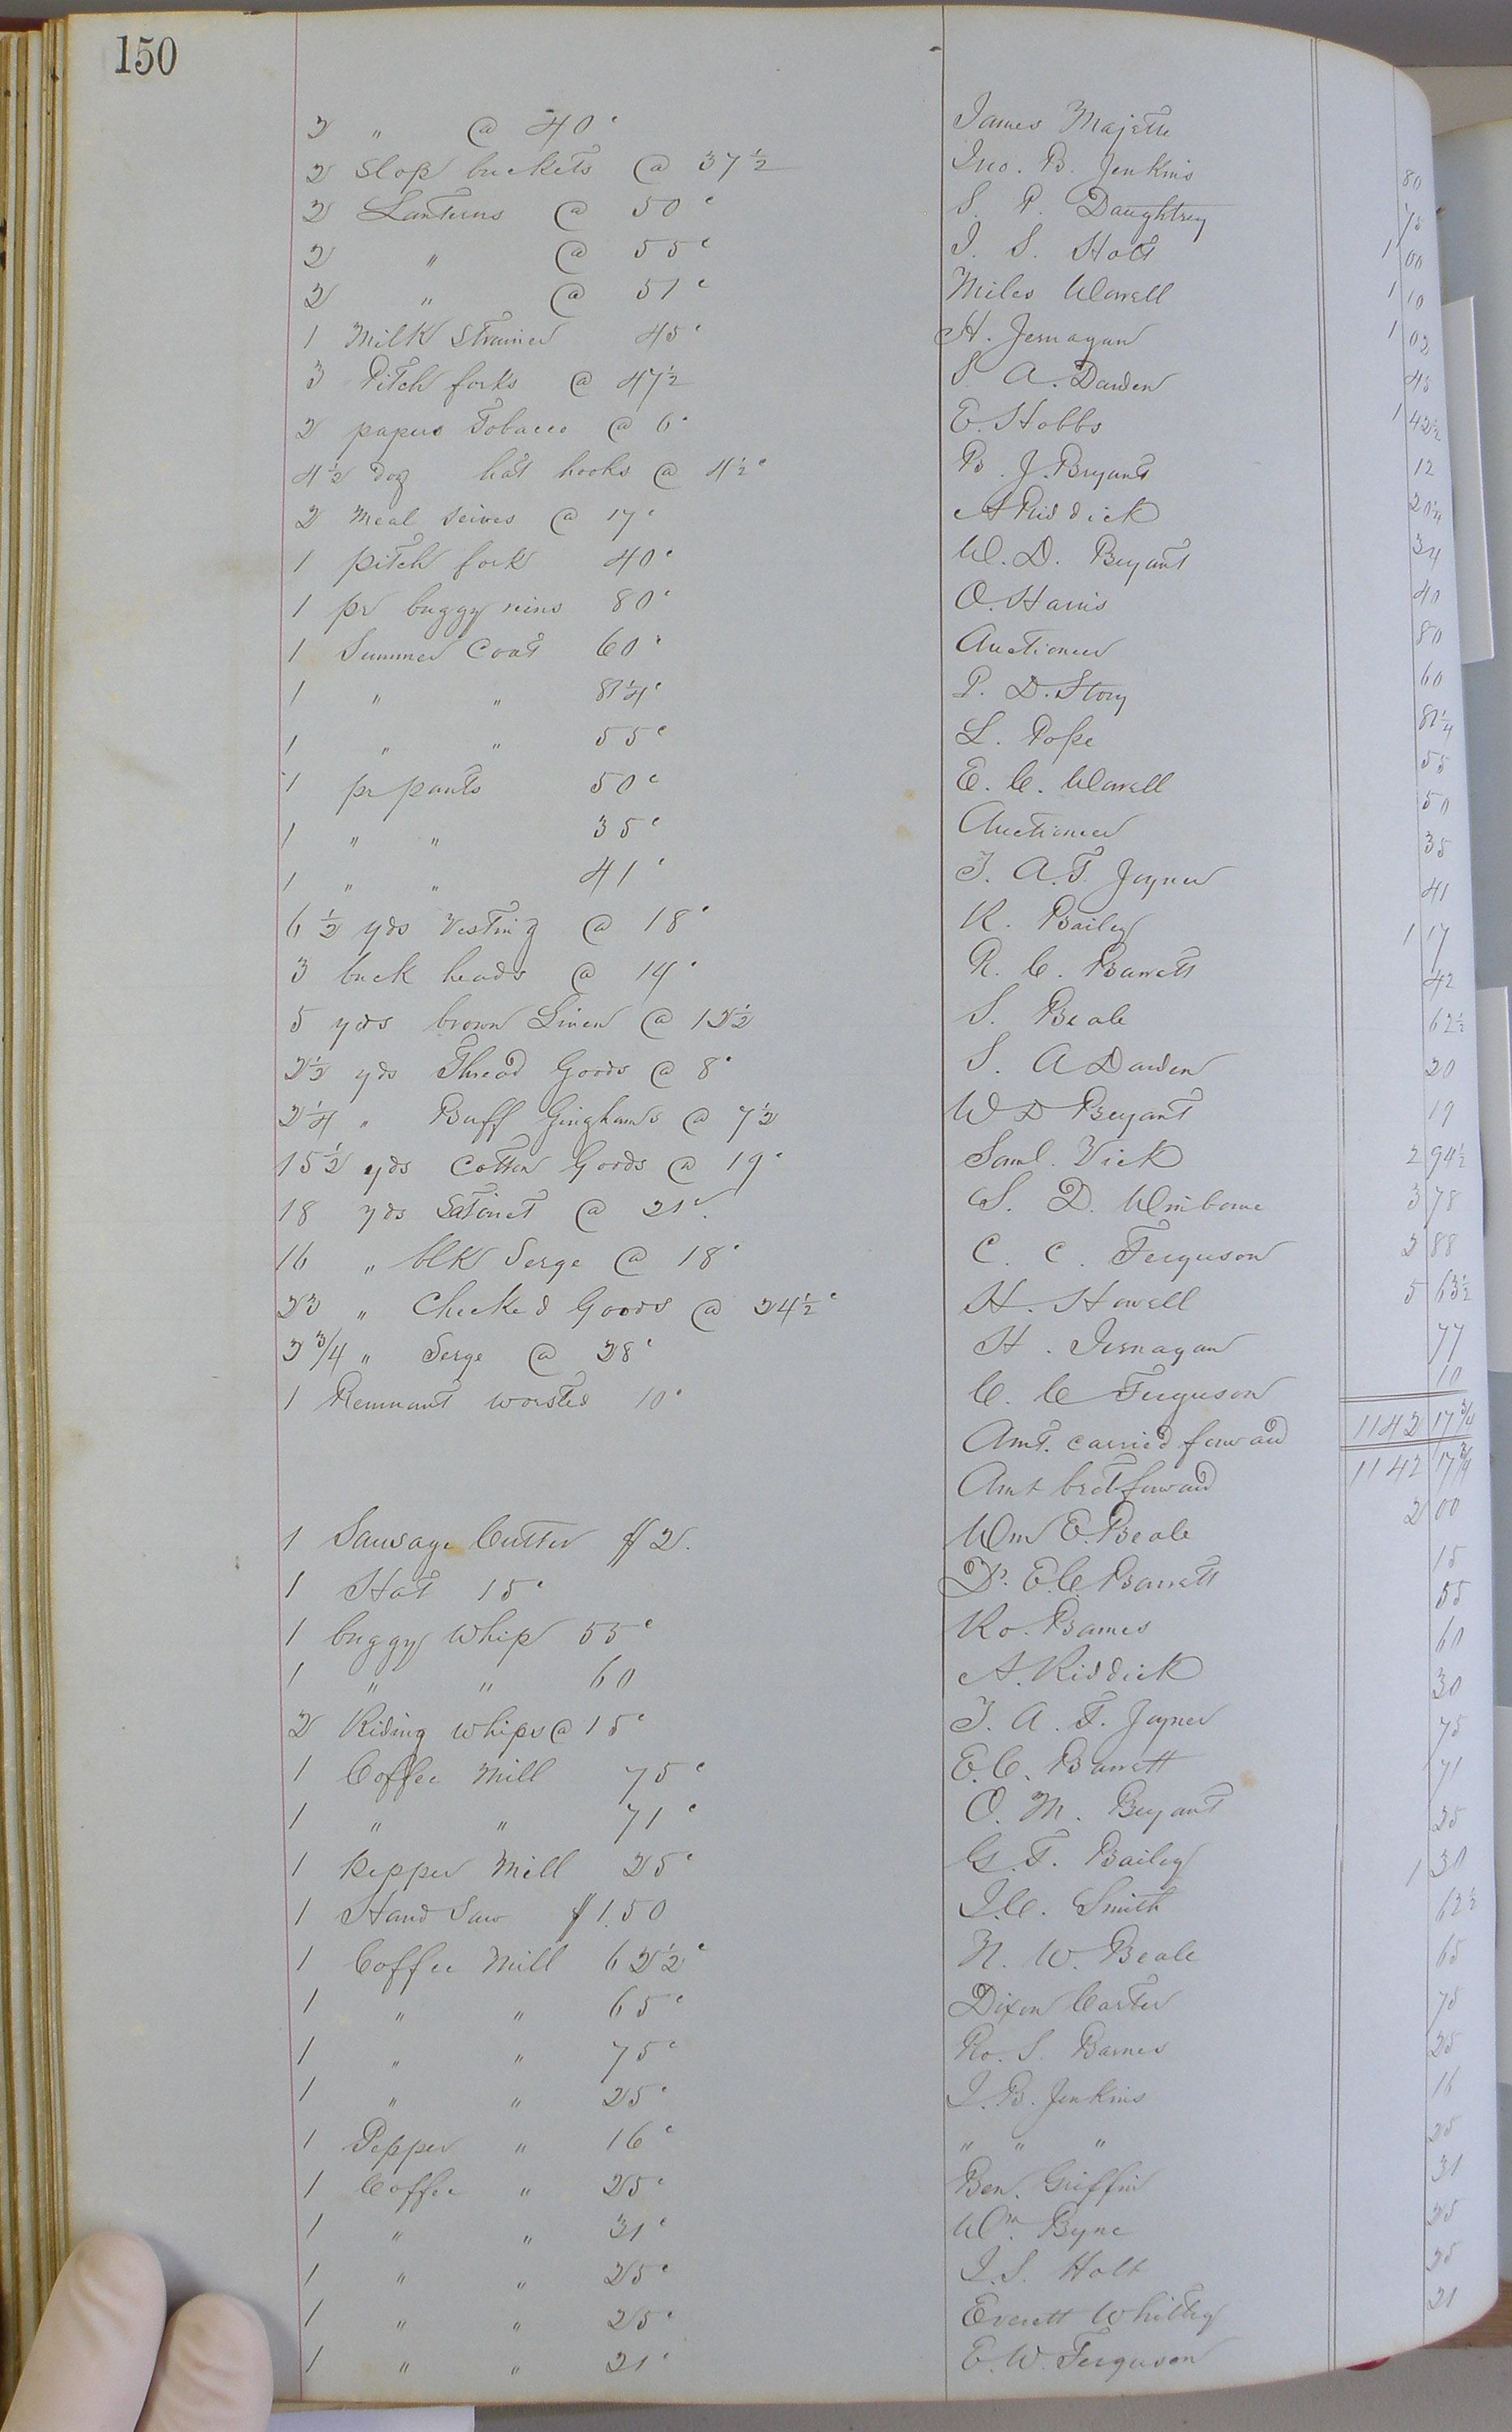 150
2 " @ 40c James Majette 80
2 Slop buckets @ 37½ Jno. B. Jenkins 75
2 Lanterns @ 50c S. P. Daughtrey 1 00
2 " @ 55c J. S. Holt 1 10
2 " @ 51c Miles Worrell 1 02
1 Milk Strainer 45c H. Jernagan 45
3 Pitch forks @ 47½ S. A. Darden 1 42½
2 papers Tobacco @ 6c E. Hobbs 12
4½ doz hat hooks @ 4½c B. J. Bryant 20¼
2 Meal Seives @ 17c A Riddick 34
1 pitch fork 40c W. D. Bryant 40
1 pr buggy reins 80c O. Harris 80
1 Summer Coat 60c Auctioneer 60
1 " " 81¼c P. D. Story 81¼
1 " " 55c L. Pope 55
1 pr pants 50c E. C. Worrell 50
1 " " 35c Auctioneer 35
1 " " 41c T. A. T. Joyner 41
6½ yds Vesting @ 18c R. Bailey 1 17
3 buck heads @ 14c R. C. Barrett 42
5 yds brown Linen @ 12½ S. Beale 62½
2½ yds Thread Goods @ 8c S. A Darden 20
2¼ " Buff Ginghams @ 7½ W D Bryant 19
15½ yds Cotton Goods @ 19c Saml. Vick 2 94½
18 yds Satinet @ 21c. S. D. Winborne 3 78
16 " blk Serge @ 18c C. C. Ferguson 2 88
23 " Checked Goods @ 24½c H. Howell 5 63½
2 3/4 " Serge @ 28c H. Jernagan 77
1 Remnant worsted 10c C. C Ferguson 10
Amt. carried forward 1142 17 3/4
Amt brot forward 1142 17 3/4
1 Sausage Cutter $2. Wm E. Beale 2 00
1 Hat 15c Dr. E. C Barrett 15
1 buggy Whip 55c Ro. Barnes 55
1 " " 60 A. Riddick 60
2 Riding whips @ 15c T. A. T. Joyner 30
1 Coffee Mill 75c E. C. Barrett 75
1 " " 71c O. M. Bryant 71
1 Pepper Mill 25c G. T. Bailey 25
1 Hand Saw $1.50 J. C. Smith 1 30
1 Coffee Mill 62½c N. W. Beale 62½
1 " " 65c Dixon Carter 65
1 " " 75c Ro. S. Barnes 75
1 " " 25c J. B. Jenkins 25
1 Pepper " 16c " " " 16
1 Coffee " 25c Ben. Griffin 25
1 " " 31c Wm. Byne 31
1 " " 25c J. S. Holt 25
1 " " 25c Everett Whitley 25
1 " " 21c E. W. Ferguson 21